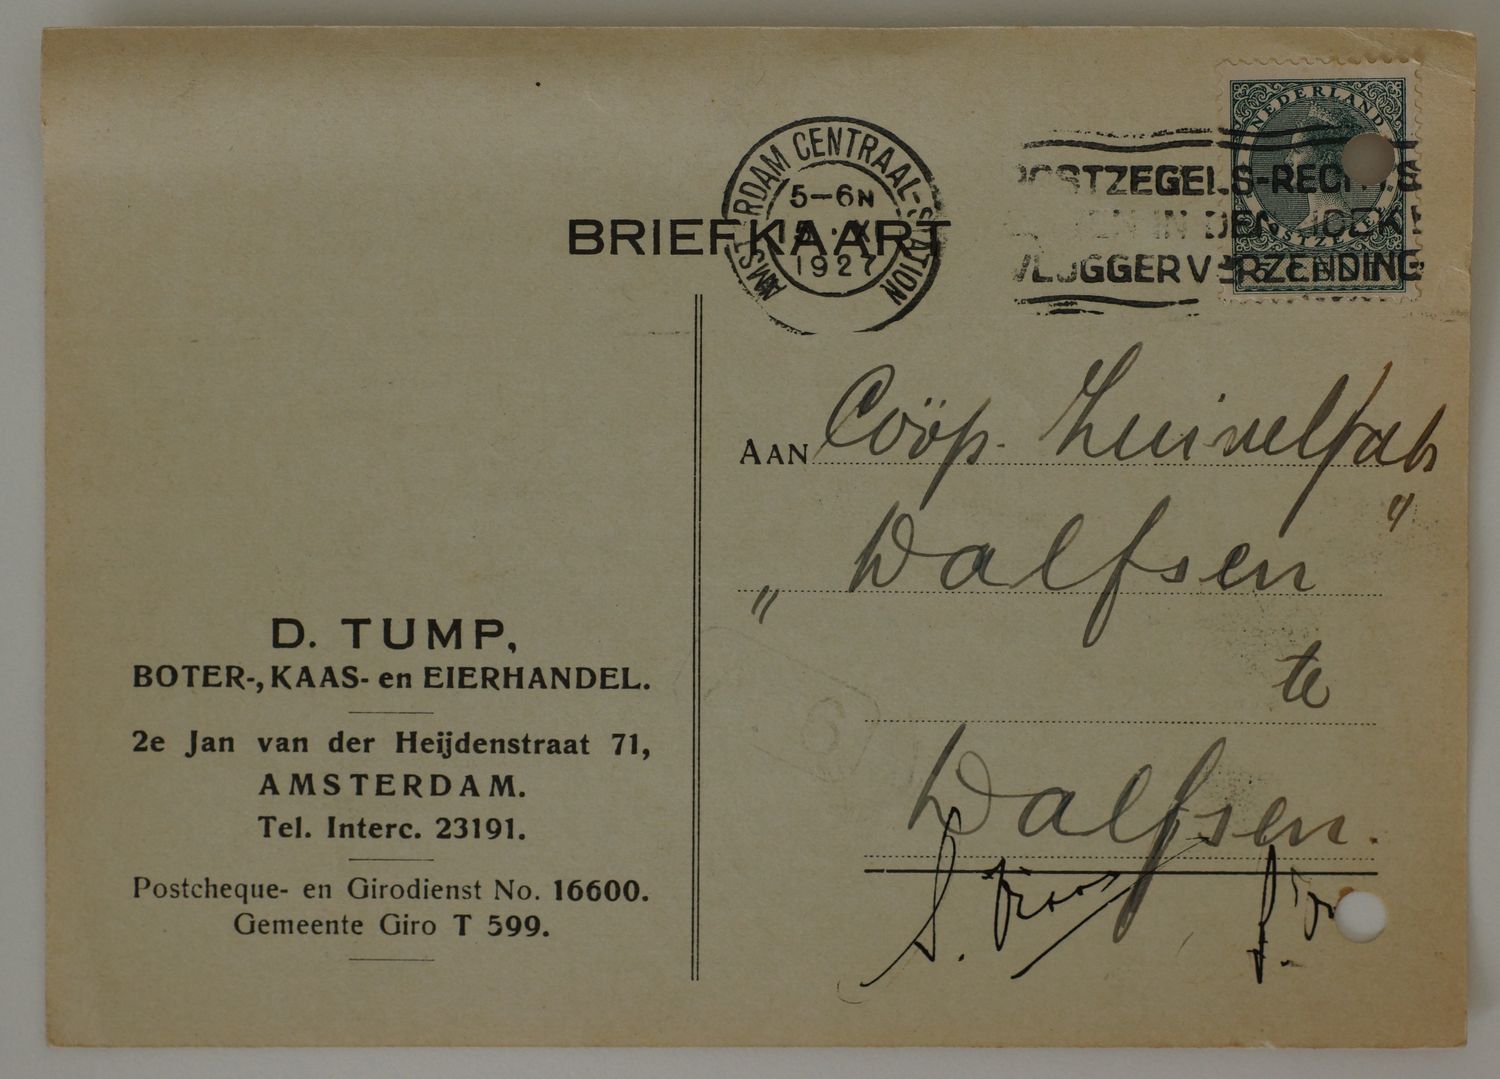 NEDERLAND
AMSTERDAM CENTRAAL-STATION
5-6N
15 · X
1927
POSTZEGELS-RECHTS
IN DEN HOEK!
VLUGGER VERZENDING
5 CENT
BRIEFKAART
AAN Coöp. Zuivelfab
„ Dalfsen "
te
Dalfsen.
D. TUMP,
BOTER-, KAAS- en EIERHANDEL.
2e Jan van der Heijdenstraat 71,
AMSTERDAM.
Tel. Interc. 23191.
Postcheque- en Girodienst No. 16600.
Gemeente Giro T 599.